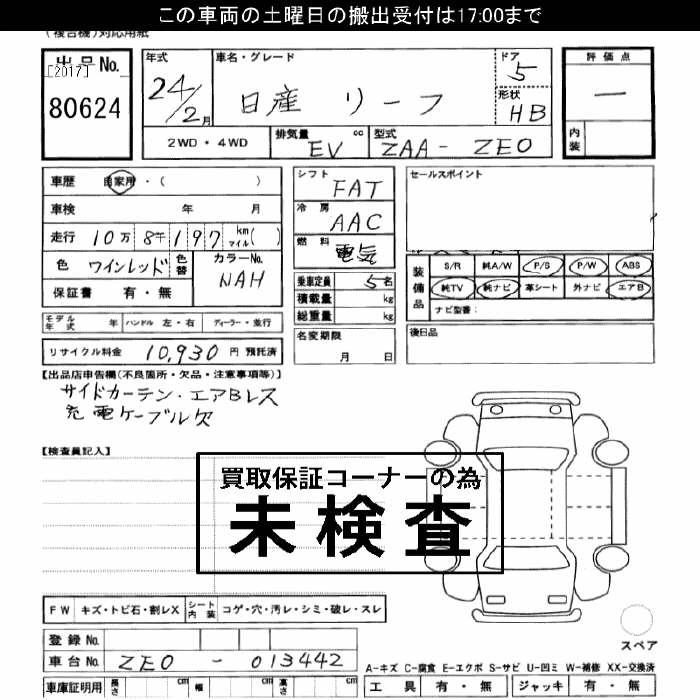 この車両の土曜日の搬出受付は17:00まで
(複合機)対応用紙
出品No.
[2017]
80624
年式
24/2月
車名・グレード
日産 リーフ
ドア
5
形状
HB
評価点
―
内装
2WD・4WD
排気量 cc
EV
型式
ZAA-ZE0
車歴 自家用・( )
車検 年 月
走行 10万8千197 km マイル( )
色 ワインレッド 色替
カラーNo.
NAH
保証書 有・無
シフト
FAT
冷房
AAC
燃料
電気
乗車定員 5名
積載量 kg
総重量 kg
セールスポイント
装備品
S/R 純A/W P/S P/W ABS
純TV 純ナビ 革シート 外ナビ エアB
ナビ型番:
モデル年式 年 ハンドル 左・右 ディーラー・並行
リサイクル料金 10,930円 預託済
名変期限
月 日
後日品
【出品店申告欄(不良箇所・欠品・注意事項等)】
サイドカーテン・エアBレス
充電ケーブル欠
【検査員記入】
買取保証コーナーの為
未検査
FW キズ・トビ石・割レX シート内装 コゲ・穴・汚レ・シミ・破レ・スレ
登録No.
車台No. ZE0-013442
車庫証明用 長さ cm 幅 cm 高さ cm
スペア
A-キズ C-腐食 E-エクボ S-サビ U-凹ミ W-補修 XX-交換済
工具 有・無 ジャッキ 有・無